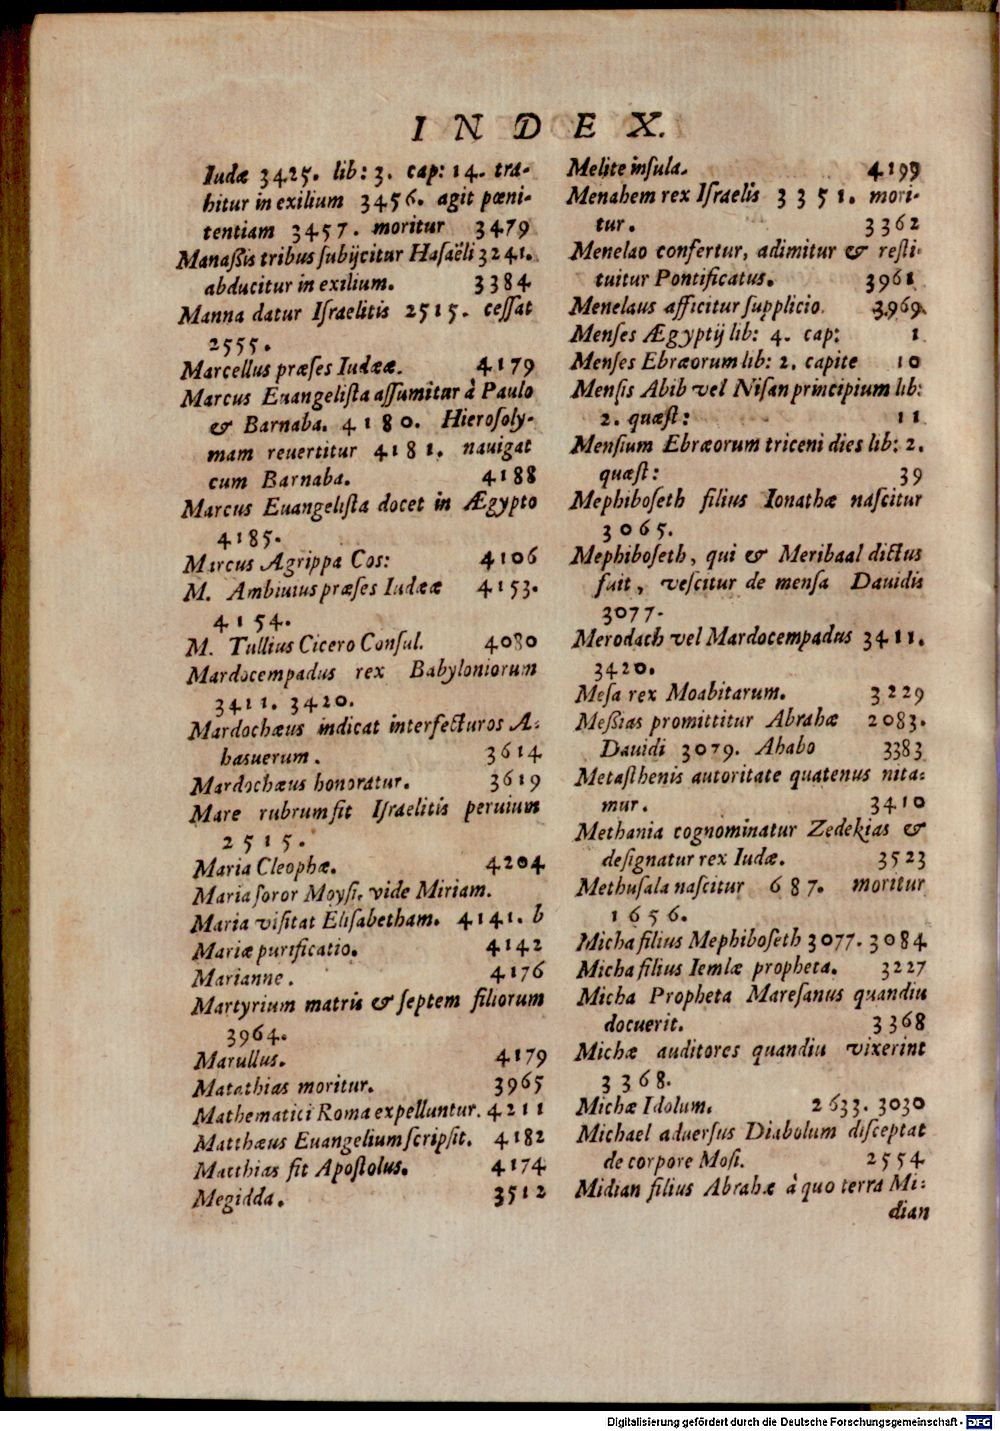 INDEX.
Iudæ 3425. lib: 3. cap: 14. tra-
hitur in exilium 3456. agit pœni-
tentiam 3457. moritur 3479
Manaßis tribus ſubijcitur Haſaëli 3241.
abducitur in exilium. 3384
Manna datur Iſraelitis 2515. ceſſat
2555.
Marcellus præſes Iudææ. 4179
Marcus Euangeliſta aſſumitur à Paulo
& Barnaba. 4180. Hieroſoly-
mam reuertitur 4181. nauigat
cum Barnaba. 4188
Marcus Euangeliſta docet in Ægypto
4185.
Marcus Agrippa Cos: 4106
M. Ambiuius præſes Iudææ 4153.
4154.
M. Tullius Cicero Conſul. 4080
Mardocempadus rex Babyloniorum
3411. 3420.
Mardochæus indicat interfecturos A-
hasuerum. 3614
Mardochæus honoratur. 3619
Mare rubrum fit Iſraelitis peruium
2515.
Maria Cleophæ. 4204
Maria ſoror Moyſi, vide Miriam.
Maria viſitat Eliſabetham. 4141. b
Mariæ purificatio. 4142
Marianne. 4176
Martyrium matris & ſeptem filiorum
3964.
Marullus. 4179
Matathias moritur. 3965
Mathematici Roma expelluntur. 4211
Matthæus Euangelium ſcripſit. 4182
Matthias fit Apoſtolus. 4174
Megidda. 3512
Melite inſula. 4199
Menahem rex Iſraelis 3351. mori-
tur. 3362
Menelao confertur, adimitur & reſti-
tuitur Pontificatus. 3961
Menelaus afficitur ſupplicio. 3969.
Menſes Ægyptij lib: 4. cap: 1
Menſes Ebræorum lib: 2. capite 10
Menſis Abib vel Niſan principium lib:
2. quæſt: 11
Menſium Ebræorum triceni dies lib: 2.
quæſt: 39
Mephiboſeth filius Ionathæ naſcitur
3065.
Mephiboſeth, qui & Meribaal dictus
fuit, veſcitur de menſa Dauidis
3077.
Merodach vel Mardocempadus 3411.
3420.
Meſa rex Moabitarum. 3229
Meßias promittitur Abrahæ 2083.
Dauidi 3079. Ahabo 3383
Metaſthenis autoritate quatenus nita-
mur. 3410
Methania cognominatur Zedekias &
deſignatur rex Iudæ. 3523
Methuſala naſcitur 687. moritur
1656.
Micha filius Mephiboſeth 3077. 3084
Micha filius Iemlæ propheta. 3227
Micha Propheta Mareſanus quandiu
docuerit. 3368
Michæ auditores quandiu vixerint
3368.
Michæ Idolum. 2633. 3030
Michael aduerſus Diabolum diſceptat
de corpore Moſi. 2554
Midian filius Abrahæ à quo terra Mi-
dian
Digitalisierung gefördert durch die Deutsche Forschungsgemeinschaft - DFG